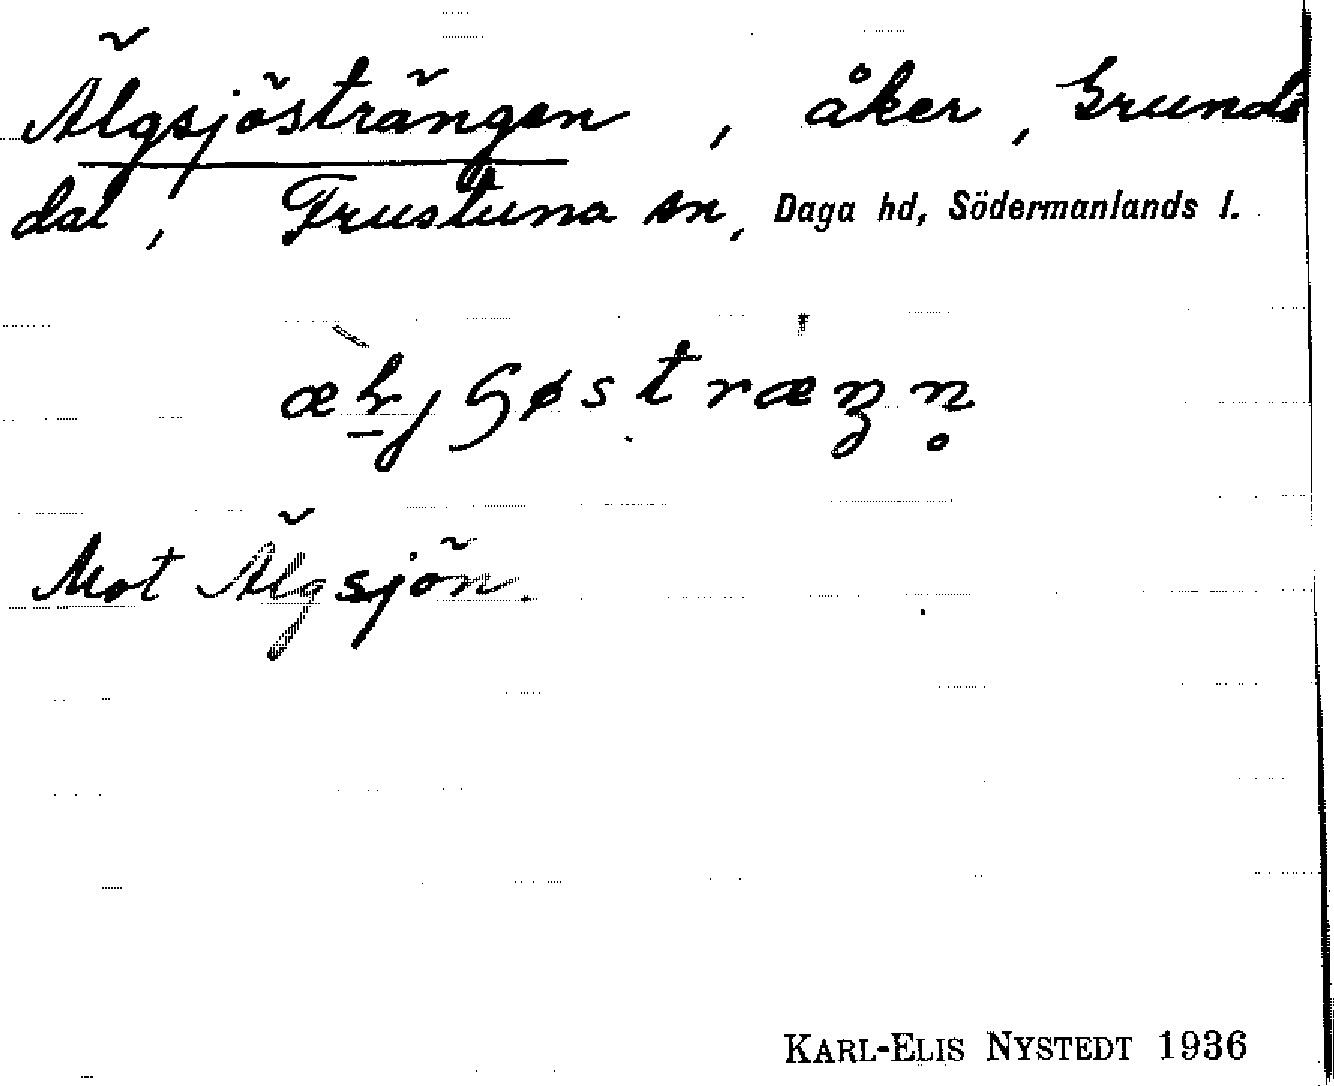 Älgsjösträngen, åker, Grunds
dal, Frustuna sn, Daga hd, Södermanlands l.
Mot Älgsjön.
KARL-ELIS NYSTEDT 1936